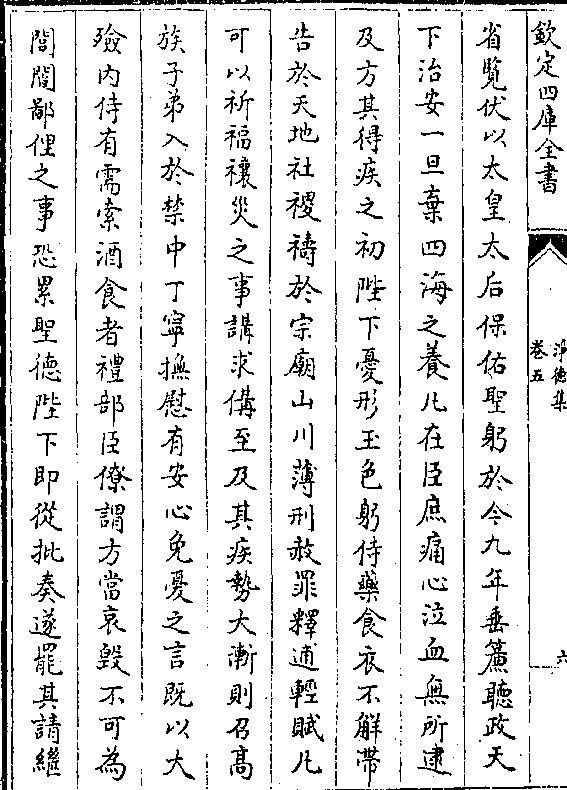 欽定四庫全書
淨德集
卷五
六
省覽伏以太皇太后保佑聖躬於今九年垂簾聽政天
下治安一旦棄四海之養凡在臣庶痛心泣血無所逮
及方其得疾之初陛下憂形玉色躬侍藥食衣不解帶
告於天地社稷禱於宗廟山川薄刑赦罪釋逋輕賦凡
可以祈福禳災之事講求備至及其疾勢大漸則召髙
族子弟入於禁中丁寧撫慰有安心免憂之言既以大
殮内侍有需索酒食者禮部臣僚謂方當哀毀不可為
閭閻鄙俚之事恐累聖德陛下即從批奏遂罷其請繼